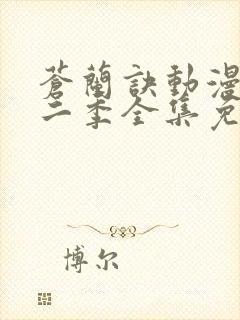 蒼蘭訣動漫
二季全集免
博尔